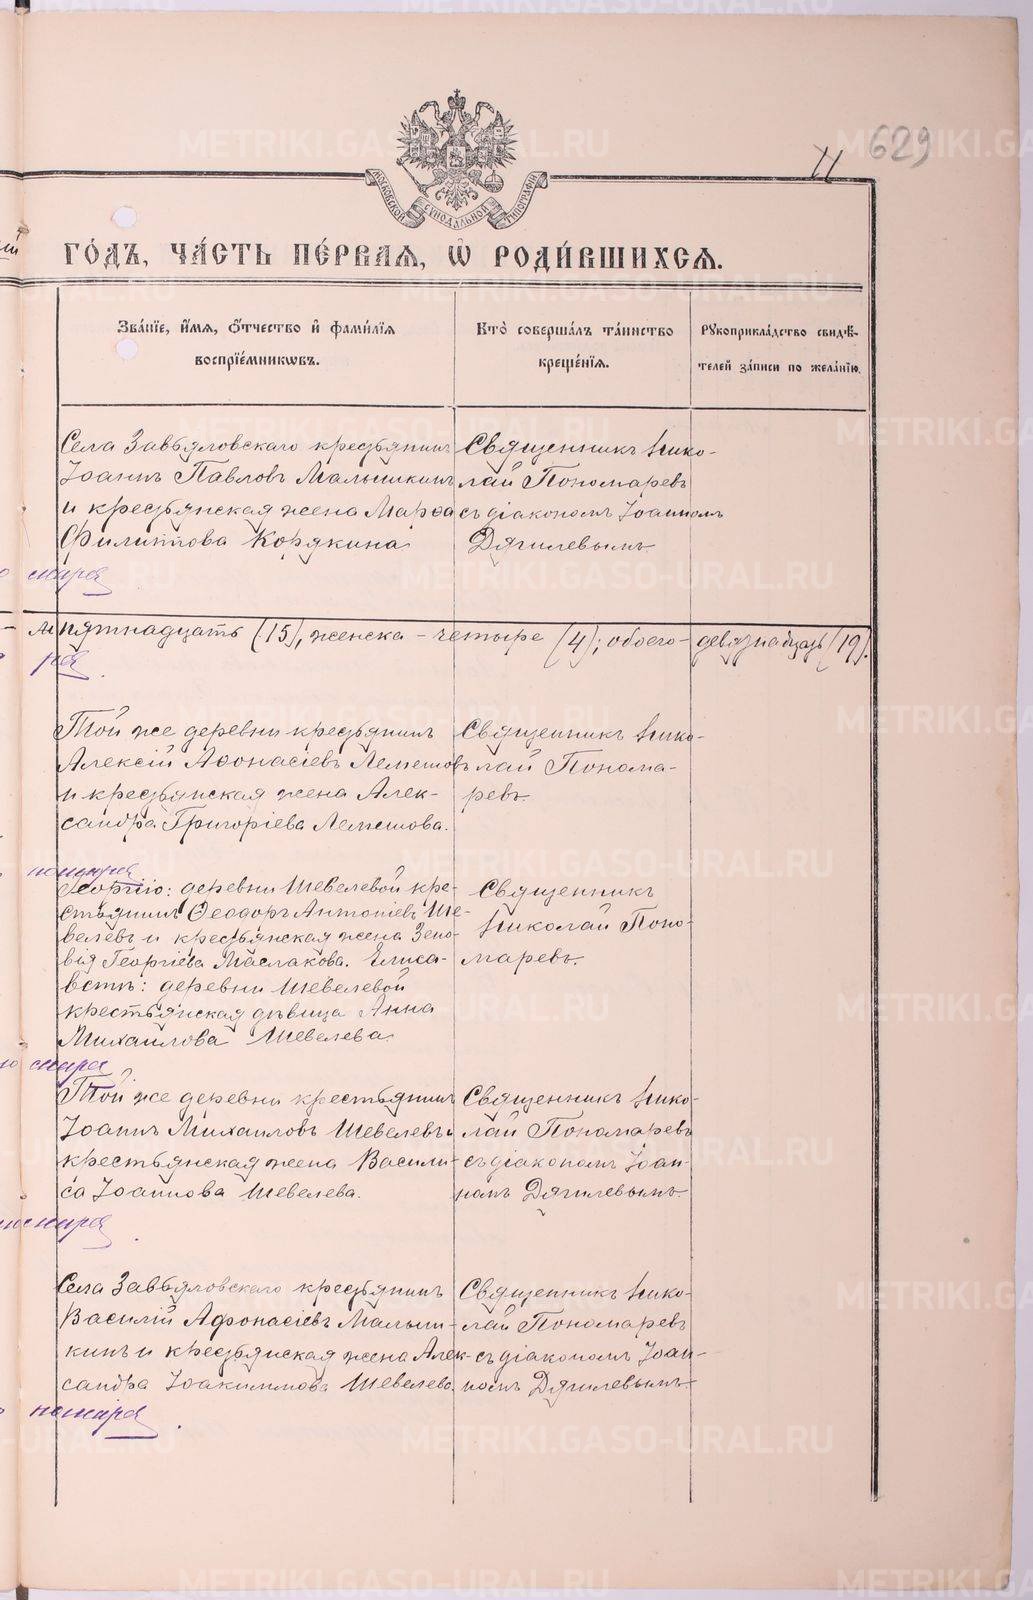 11 629
МОСКОВСКОЙ СѴНОДАЛЬНОЙ ТИПОГРАФІИ
ГО́ДЪ, ЧА́СТЬ ПЕ́РВАѦ, Ѡ҆ РОДИ́ВШИХСѦ.
Зва́нїе, и҆́мѧ, ѻ҆́тчество и҆ фами́лїѧ
воспрїе́мникѡвъ.
Кто̀ соверша́лъ та́инство
креще́нїѧ.
Рꙋкоприкла́дство свидѣ́-
телей за́писи по жела́нїю.
Села Завьяловскаго крестьянинъ
Іоаннъ Павловъ Малышкинъ
и крестьянская жена Марѳа
Филиппова Корякина
Священникъ Нико-
лай Пономаревъ
съ діакономъ Іоанномъ
Дягилевымъ
пятнадцать (15), женска – четыре (4); обоего – девятнадцать (19).
Той же деревни крестьянинъ
Алексій Аѳонасіевъ Лемешовъ
и крестьянская жена Алек-
сандра Григоріева Лемешова.
Священникъ Нико-
лай Понома-
ревъ.
Георгію: деревни Шевелевой кре-
стьянинъ Ѳеодоръ Антоніевъ Ше-
велевъ и крестьянская жена Зено-
вія Георгіева Маслакова. Елиса-
ветѣ: деревни Шевелевой
крестьянская дѣвица Анна
Михаилова Шевелева
Священникъ
Николай Поно-
маревъ.
Той же деревни крестьянинъ
Іоаннъ Михаиловъ Шевелевъ и
крестьянская жена Васили-
са Іоаннова Шевелева.
Священникъ Нико-
лай Пономаревъ
съ діакономъ Іоан-
номъ Дягилевымъ
Села Завьяловскаго крестьянинъ
Василій Афонасіевъ Малыш-
кинъ и крестьянская жена Алек-
сандра Іоакимова Шевелева.
Священникъ Нико-
лай Пономаревъ
съ діакономъ Іоан-
номъ Дягилевымъ
METRIKI.GASO-URAL.RU